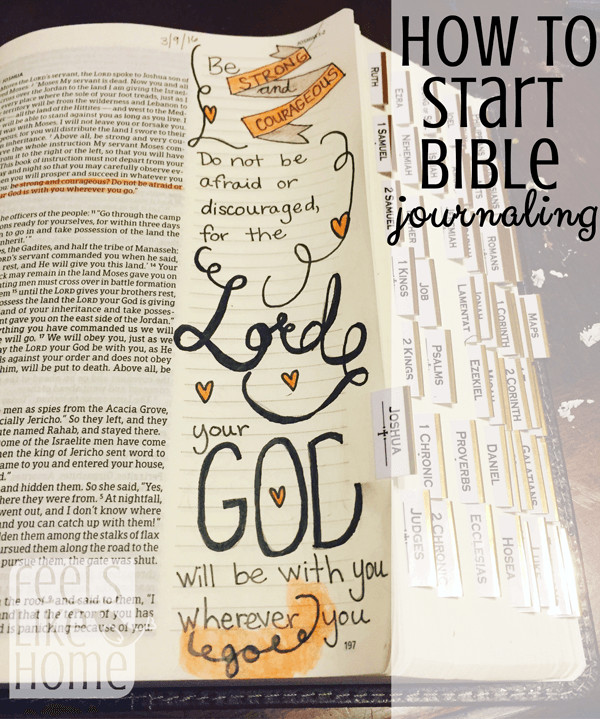 HOW TO
START
BIBLE
journaling
3/9/16
Be
STRONG
and
COURAGEOUS
Do not be
afraid or
discouraged,
for the
Lord
your
GOD
will be with you
wherever you
go
197
JOSHUA
the LORD's servant, the LORD spoke to Joshua son of
Moses My servant is dead. Now you and all
cross over the Jordan to the land I am giving the
every place where the sole of your foot treads, just as I
territory will be from the wilderness and Lebanon to
all the land of the Hittites — and west to the Med-
will be able to stand against you as long as you live. I
was with Moses. I will not leave you or forsake you.
for you will distribute the land I swore to their
Above all, be strong and very cou-
the whole instruction My servant Moses com-
from it to the right or the left, so that you will have
This book of instruction must not depart from your
day and night so that you may carefully observe ev-
then you will prosper and succeed in whatever you
be strong and courageous? Do not be afraid or
God is with you wherever you go."
the officers of the people: 11 "Go through the camp
ready for yourselves, for within three days
to go in and take possession of the land the
inherit.'"
the Gadites, and half the tribe of Manasseh:
LORD's servant commanded you when he said,
rest, and He will give you this land.' 14 Your
may remain in the land Moses gave you on
fighting men must cross over in battle formation
until the LORD gives your brothers rest,
possess the land the LORD your God is giving
land of your inheritance and take posses-
gave you on the east side of the Jordan."
everything you have commanded us we will
we will go. 17 We will obey you, just as we
may the LORD your God be with you, as He
against your order and does not obey
him, will be put to death. Above all, be
men as spies from the Acacia Grove,
especially Jericho." So they left, and they
named Rahab, and stayed there.
some of the Israelite men have come
then the king of Jericho sent word to
came to you and entered your house,
and hidden them. So she said, "Yes,
where they were from. 5 At nightfall,
went out, and I don't know where
and you can catch up with them!"
hidden them among the stalks of flax
pursued them along the road to the
pursue them, the gate was shut.
the roof and said to them, "I
and that the terror of you has
is panicking because of you.
RUTH
1 SAMUEL
2 SAMUEL
1 KINGS
2 KINGS
JOSHUA
JUDGES
EZRA
NEHEMIAH
JOB
PSALMS
1 CHRONIC
2 CHRONIC
PROVERBS
ECCLESIAS
LAMENTAT
EZEKIEL
DANIEL
HOSEA
JONAH
ROMANS
1 CORINTH
2 CORINTH
GALATIANS
LUKE
MAPS
FEELS
LIKE
HOME